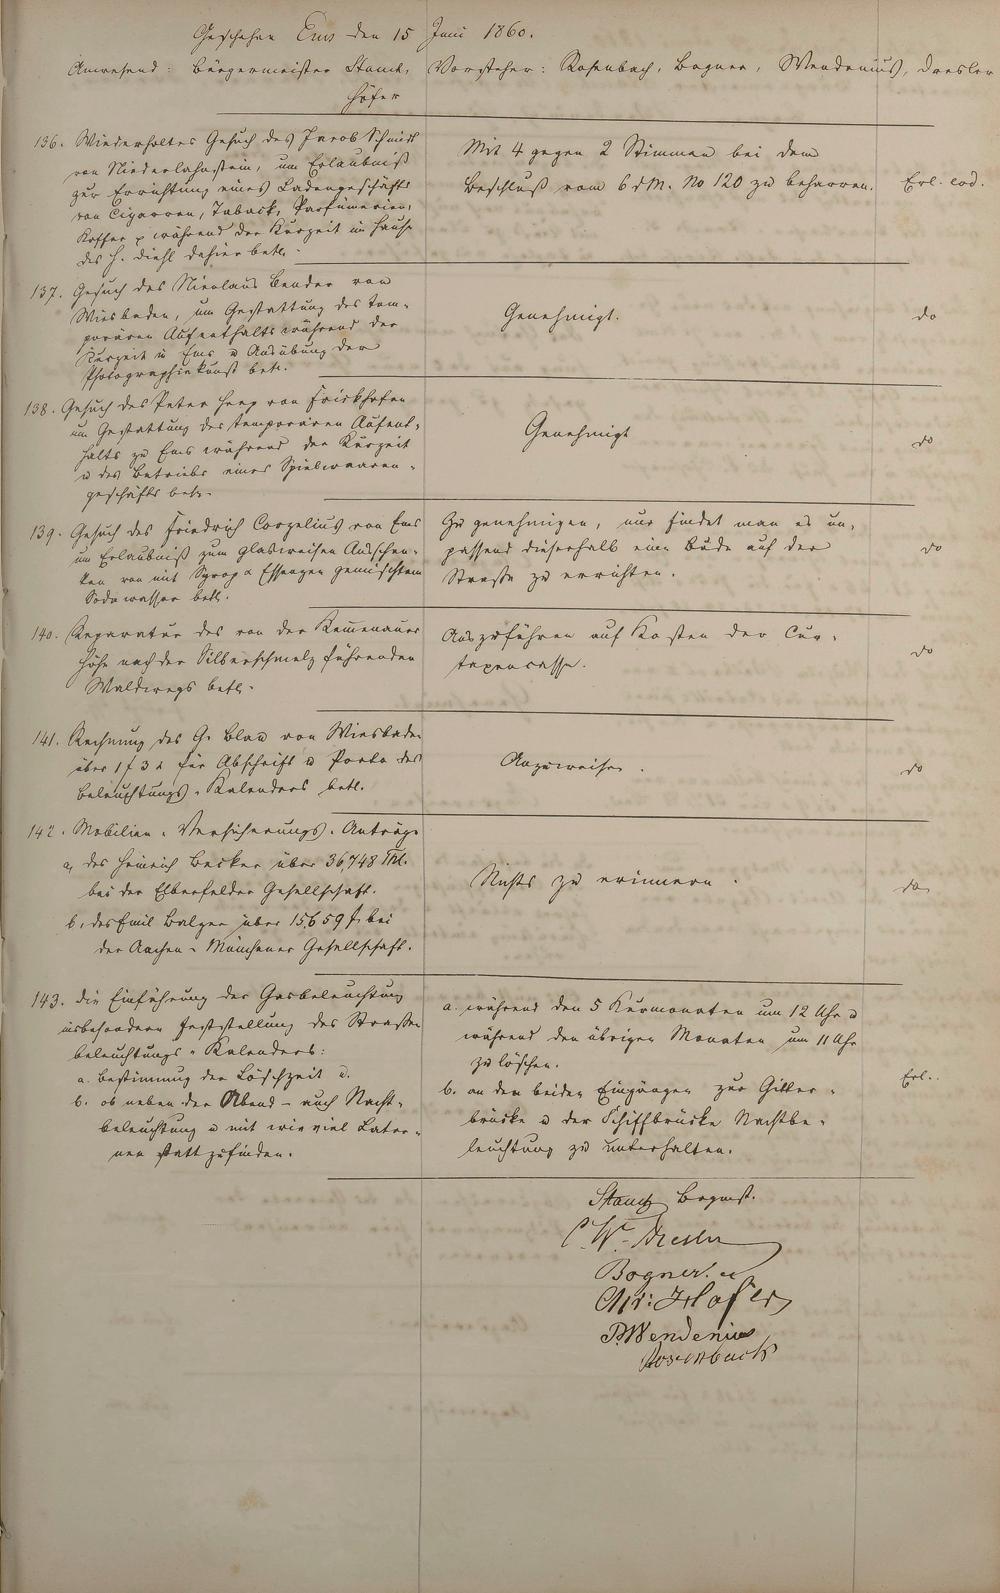 Geschehen Ems den 15 Juni 1860.
Anwesend: Bürgermeister Stanck, Vorsteher: Rosenbach, Bogner, Wendenius, Dresler
Höfer
136. Wiederholtes Gesuch des Jacob Schmidt
von Niederlahnstein, um Erlaubniß
zur Errichtung eines Ladengeschäfts
von Cigarren, Taback, Parfümerien,
Koffer p während der Kurzeit im Hause
des H. Diehl dahier betr.
Mit 4 gegen 2 Stimmen bei dem
Beschluß vom 6 d M. No 120 zu beharren.
Erl. eod.
137. Gesuch des Nicolaus Bender von
Wiesbaden, um Gestattung des tem-
porären Aufenthalts während der
Kurzeit in Ems u Ausübung der
Photographiekunst betr.
Genehmigt.
do
138. Gesuch des Peter Heep von Frickhofen
um Gestattung des temporären Aufent-
halts zu Ems während der Kurzeit
u des Betriebs eines Spielwaaren-
geschäfts betr.
Genehmigt
do
139. Gesuch des Friedrich Corzelius von Ems
um Erlaubniß zum glasweisen Ausschen-
ken von mit Syrop u Essenzen gemischtem
Sodawasser betr.
Zu genehmigen, nur findet man es un-
passend dieserhalb eine Bude auf der
Straße zu errichten.
do
140. Reparatur des von der Kemmenauer
Höhe nach der Silberschmelz führenden
Waldwegs betr.
Auszuführen auf Kosten der Cur-
taxencasse.
do
141. Rechnung des G. Blau von Wiesbaden
über 1 f 3 x für Abschrift u Porto des
Beleuchtungs-Kalenders betr.
Anzuweisen.
do
142. Mobilien-Versicherungs-Anträge
a, des Heinrich Becker über 36,748 Thl.
bei der Elberfelder Gesellschaft.
b, des Emil Balzer über 15,659 f. bei
der Aachen-Münchener Gesellschaft.
Nichts zu erinnern.
do
143. Die Einführung der Gasbeleuchtung
insbesondere Feststellung des Straßen
beleuchtungs-Kalenders:
a. Bestimmung der Löschzeit u.
b. ob neben der Abend- auch Nacht-
beleuchtung u mit wie viel Later-
nen statt zu finden.
a. während den 5 Kurmonaten um 12 Uhr u
während den übrigen Monaten um 11 Uhr
zu löschen.
b. an den beiden Eingängen zur Gitter-
brücke u der Schiffbrücke Nachtbe-
leuchtung zu unterhalten.
Erl.
Stanck Bgmst.
C. W. Dresler
Bogner.
Chr: Höfer
P. Wendenius
Rosenbach